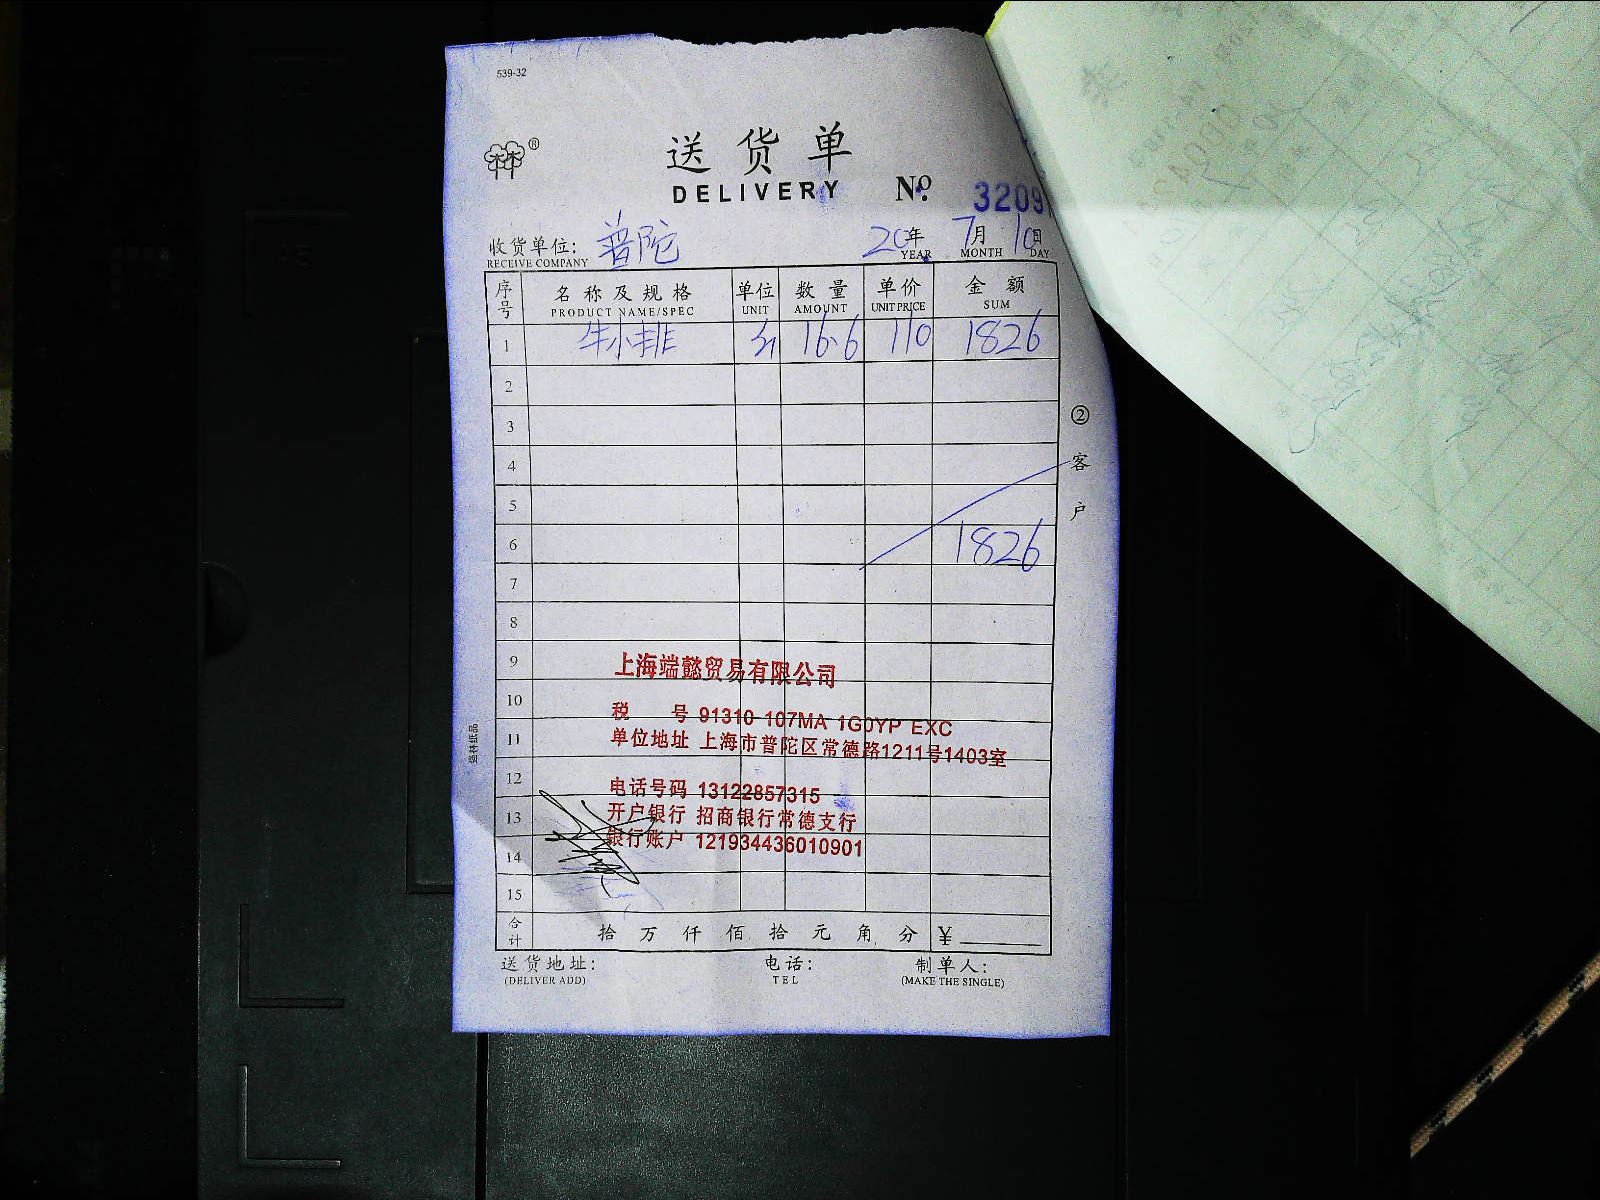 539-32
林®
送货单
DELIVERY № 3209
收货单位: 普陀 20年 7月 10日
RECEIVE COMPANY YEAR MONTH DAY
序号 名称及规格 单位 数量 单价 金额
PRODUCT NAME/SPEC UNIT AMOUNT UNIT PRICE SUM
1 牛小排 斤 16.6 110 1826
2
3
4
5
6 1826
7
8
9
10
11
12
13
14
15
上海端懿贸易有限公司
税 号 91310 107MA 1G0YP EXC
单位地址 上海市普陀区常德路1211号1403室
电话号码 13122857315
开户银行 招商银行常德支行
银行账户 121934436010901
合计 拾 万 仟 佰 拾 元 角 分 ¥
送货地址: 电话: 制单人:
(DELIVER ADD) TEL (MAKE THE SINGLE)
② 客户